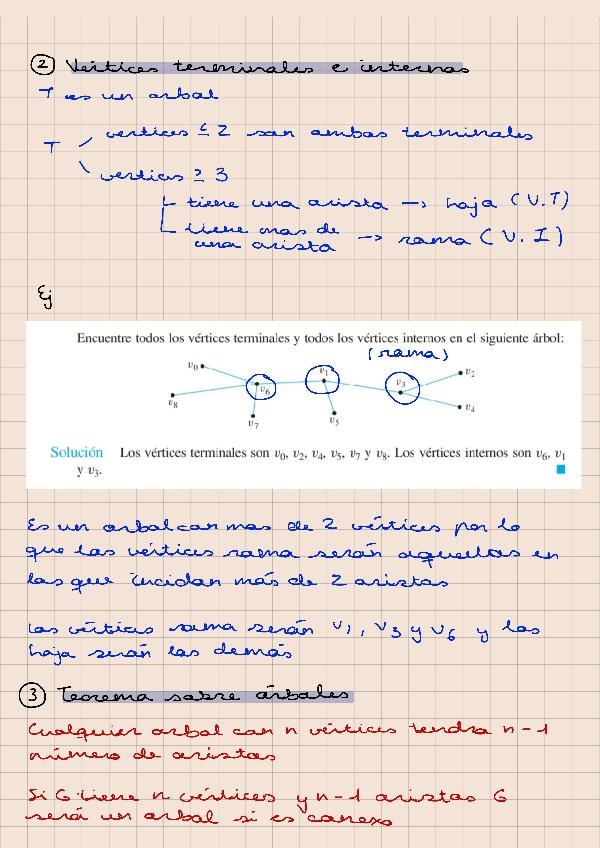 ② Vértices terminales e internos
T es un arbol
T
vertices ≤ 2 son ambos terminales
vertices ≥ 3
tiene una arista → hoja (V.T)
tiene mas de
una arista → rama (V.I)
Ej
Encuentre todos los vértices terminales y todos los vértices internos en el siguiente árbol:
(rama)
v0 v6 v8 v7 v1 v5 v3 v2 v4
Solución Los vértices terminales son v0, v2, v4, v5, v7 y v8. Los vértices internos son v6, v1
y v3.
Es un arbol con mas de 2 vértices por lo
que los vértices rama serán aquellos en
los que incidan más de 2 aristas
Los vértices rama serán v1, v3 y v6 y los
hoja serán los demás
③ Teorema sobre árboles
Cualquier arbol con n vértices tendra n-1
número de aristas
Si G tiene n vértices y n-1 aristas G
será un arbol si es conexo